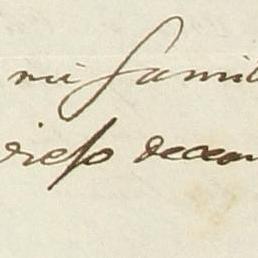 mi famil
rieso decen